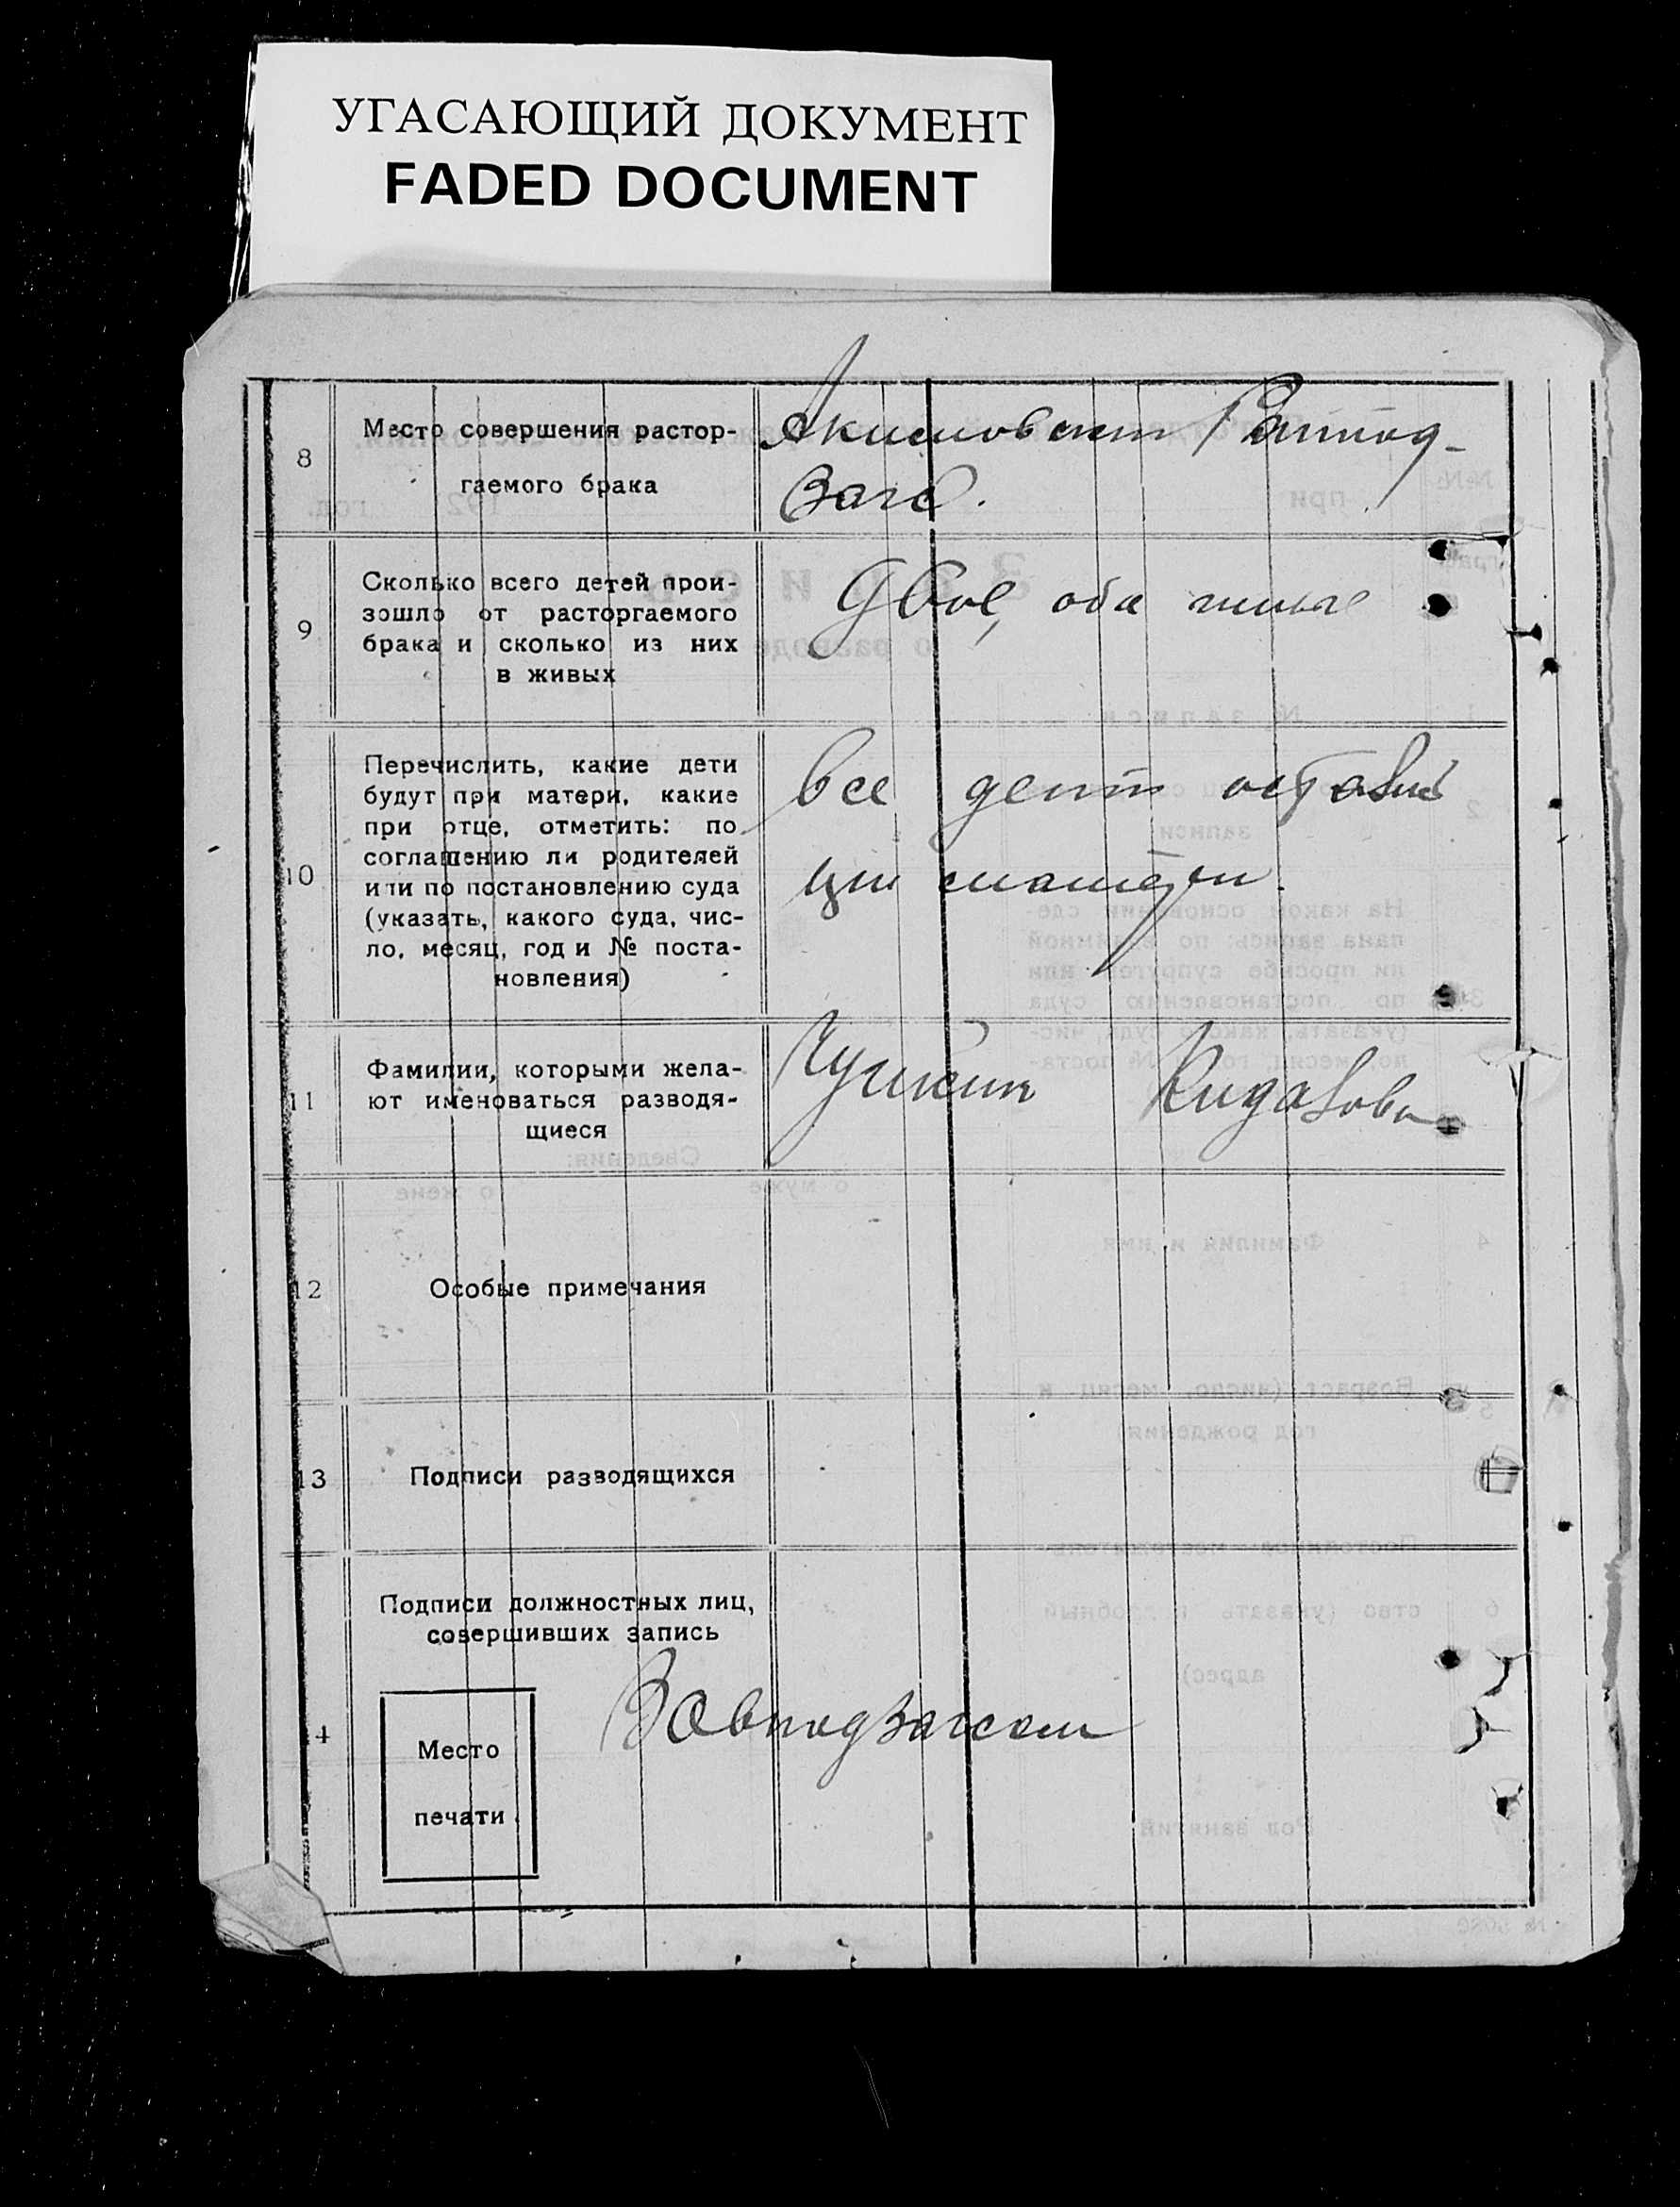 УГАСАЮЩИЙ ДОКУМЕНТ
FADED DOCUMENT
8
Место совершения растор-
гаемого брака
Акимовский
Загс.
9
Сколько всего детей прои-
зошло от расторгаемого
брака и сколько из них
в живых
Двое, оба живые
10
Перечислить, какие дети
будут при матери, какие
при отце, отметить: по
соглашению ли родителей
или по постановлению суда
(указать, какого суда, чис-
ло, месяц, год и № поста-
новления)
все дети
матери.
11
Фамилии, которыми жела-
ют именоваться разводя-
щиеся
12
Особые примечания
13
Подписи разводящихся
4
Подписи должностных лиц,
совершивших запись
Место
печати
Завподзагсом